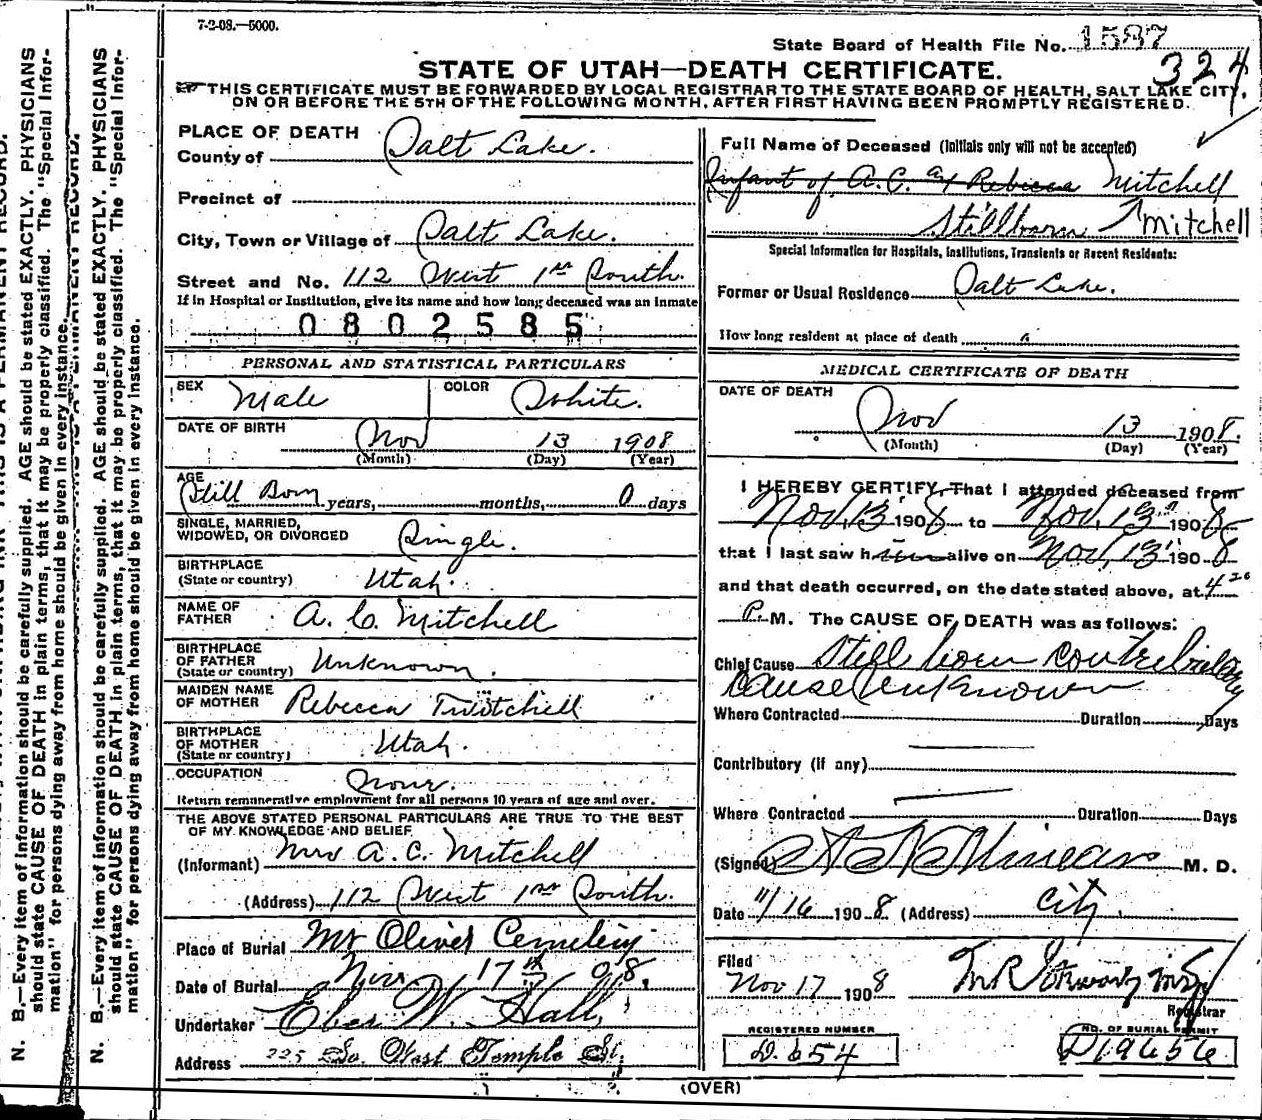 7-2-08.—5000.
State Board of Health File No. 1587
324
STATE OF UTAH—DEATH CERTIFICATE.
THIS CERTIFICATE MUST BE FORWARDED BY LOCAL REGISTRAR TO THE STATE BOARD OF HEALTH, SALT LAKE CITY,
ON OR BEFORE THE 5TH OF THE FOLLOWING MONTH, AFTER FIRST HAVING BEEN PROMPTLY REGISTERED.
PLACE OF DEATH
County of Salt Lake.
Precinct of
City, Town or Village of Salt Lake.
Street and No. 112 West 1st South.
If in Hospital or Institution, give its name and how long deceased was an inmate
0802585
PERSONAL AND STATISTICAL PARTICULARS
SEX Male COLOR White.
DATE OF BIRTH Nov 13 1908
(Month) (Day) (Year)
AGE
Still Born years, months, 0 days
SINGLE, MARRIED,
WIDOWED, OR DIVORCED Single.
BIRTHPLACE
(State or country) Utah.
NAME OF
FATHER A. C. Mitchell
BIRTHPLACE
OF FATHER
(State or country) Unknown.
MAIDEN NAME
OF MOTHER Rebecca Twitchell
BIRTHPLACE
OF MOTHER
(State or country) Utah.
OCCUPATION None.
Return remunerative employment for all persons 10 years of age and over.
THE ABOVE STATED PERSONAL PARTICULARS ARE TRUE TO THE BEST
OF MY KNOWLEDGE AND BELIEF
(Informant) Mrs A. C. Mitchell
(Address) 112 West 1st South.
Place of Burial Mt Olivet Cemetery
Date of Burial Nov 17th 08.
Undertaker Eber W. Hall,
Address 225 So. West Temple St.
Full Name of Deceased (Initials only will not be accepted)
Infant of A. C. & Rebecca Mitchell
Stillborn Mitchell
Special Information for Hospitals, Institutions, Transients or Recent Residents:
Former or Usual Residence Salt Lake.
How long resident at place of death
MEDICAL CERTIFICATE OF DEATH
DATE OF DEATH
Nov 13 1908.
(Month) (Day) (Year)
I HEREBY CERTIFY, That I attended deceased from
Nov. 13 1908 to Nov. 13" 1908
that I last saw him alive on Nov. 13" 1908
and that death occurred, on the date stated above, at 4 20
P. M. The CAUSE OF DEATH was as follows:
Chief Cause Still born contributary
cause unknown
Where Contracted Duration Days
Contributory (if any)
Where Contracted Duration Days
(Signed) M. D.
Date 11/16 1908 (Address) City.
Filed
Nov 17 1908
Registrar
REGISTERED NUMBER
D. 654
NO. OF BURIAL PERMIT
D19656
(OVER)
N. B.—Every item of information should be carefully supplied. AGE should be stated EXACTLY. PHYSICIANS
should state CAUSE OF DEATH in plain terms, that it may be properly classified. The "Special Infor-
mation" for persons dying away from home should be given in every instance.
N. B.—Every item of information should be carefully supplied. AGE should be stated EXACTLY. PHYSICIANS
should state CAUSE OF DEATH in plain terms, that it may be properly classified. The "Special Infor-
mation" for persons dying away from home should be given in every instance.